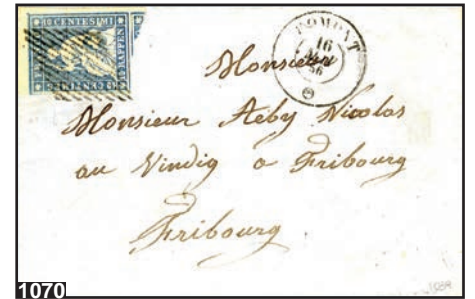 10 CENTESIMI
10 RAPPEN
ROMONT
16
56
Monsieur
Monsieur Aeby Nicolas
au Vindig a Fribourg
Fribourg
1070